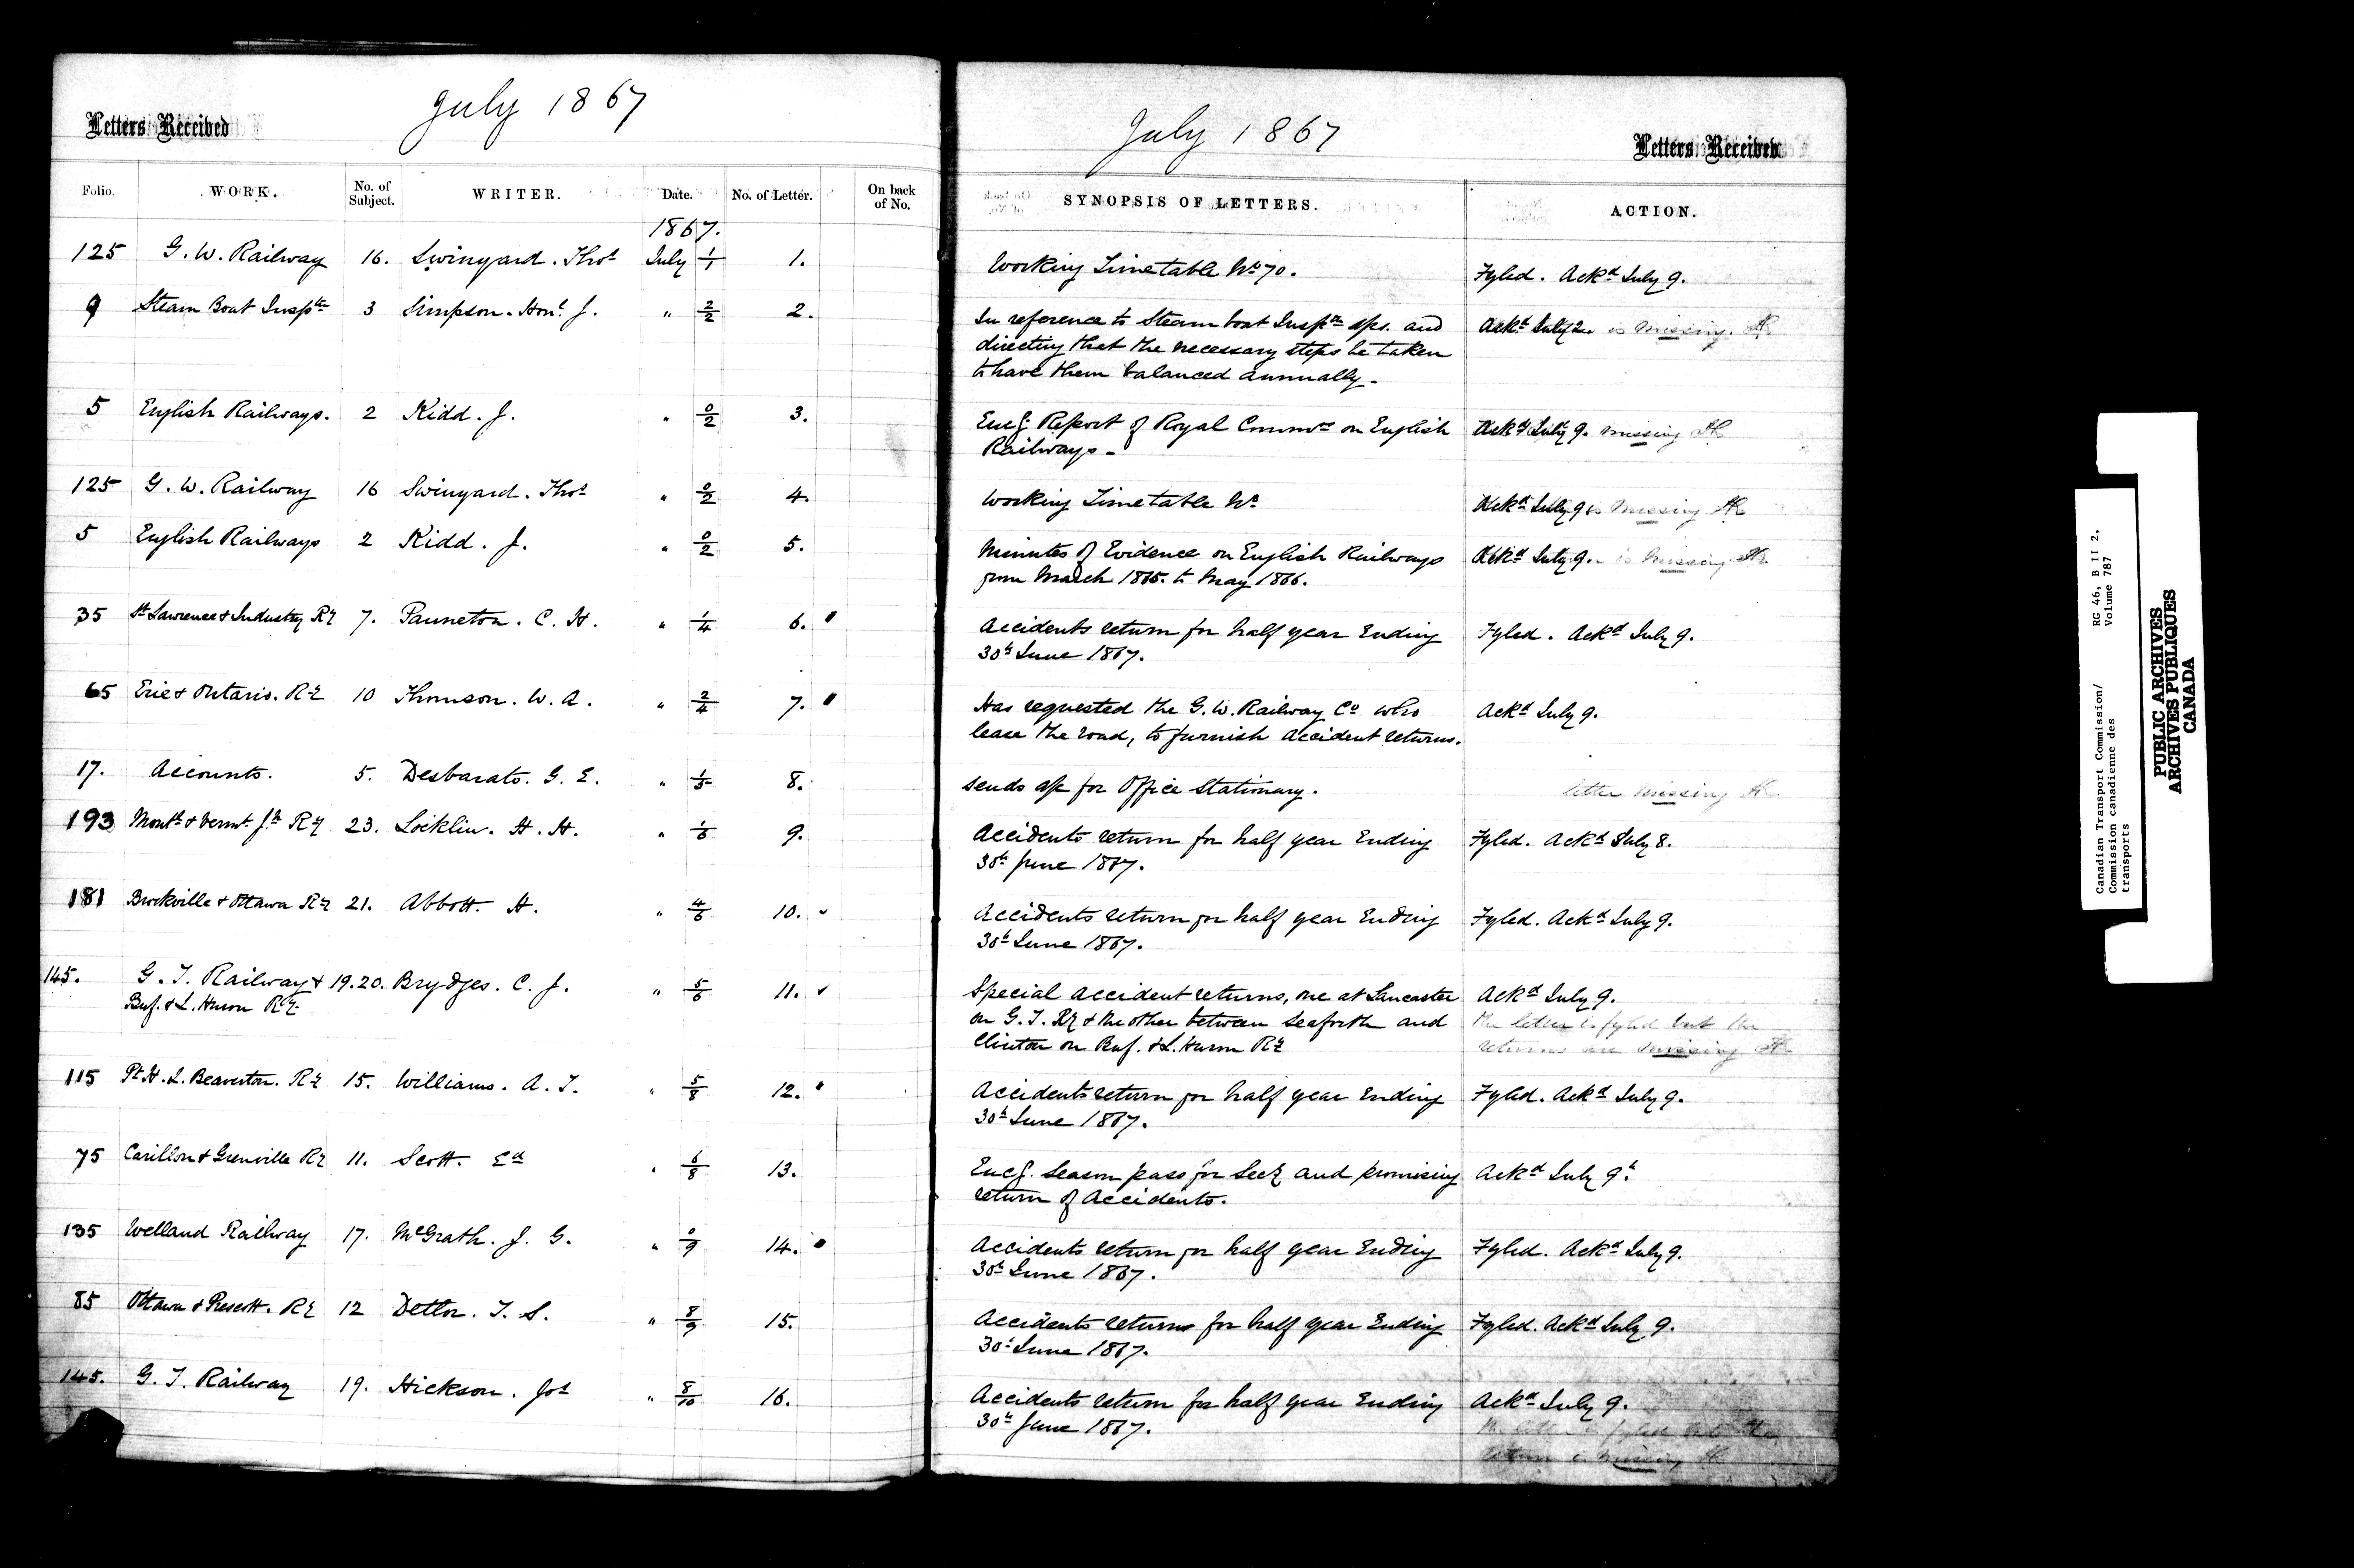 Letters Received
July 1867
Folio. WORK. No. of Subject. WRITER. Date. No. of Letter. On back of No.
1867.
125 G. W. Railway 16. Swinyard. Thos July 1/1 1.
9 Steam Boat Insptn 3 Simpson. Honl J. " 2/2 2.
5 English Railways. 2 Kidd. J. " 0/2 3.
125 G. W. Railway 16 Swinyard. Thos " 0/2 4.
5 English Railways 2 Kidd. J. " 0/2 5.
35 St Lawrence & Industry Ry 7. Panneton. C. H. " 1/4 6.
65 Erie & Ontario. Ry 10 Thomson. W. A. " 2/4 7.
17. Accounts. 5. Desbarats. G. E. " 1/5 8.
193 Montl & Vermt Jn Ry 23. Locklin. H. H. " 1/6 9.
181 Brockville & Ottawa Ry 21. Abbott. H. " 4/6 10.
145. G. T. Railway & 19.20. Brydges. C. J. " 5/6 11.
Buf. & L. Huron Ry.
115 Pt H. L. Beaverton. Ry 15. Williams. A. T. " 5/8 12.
75 Carillon & Grenville Ry 11. Scott. Ed " 6/8 13.
135 Welland Railway 17. McGrath. J. G. " 0/9 14.
85 Ottawa & Prescott. Ry 12 Detlor. T. S. " 8/9 15.
145. G. T. Railway 19. Hickson. Jos " 8/10 16.
July 1867
Letters Received
SYNOPSIS OF LETTERS. ACTION.
Working Timetable No 70. Fyled. Ackd July 9.
In reference to Steam boat Inspn a/cs. and Ackd July 2 is missing.
directing that the necessary steps be taken
to have them balanced annually.
Encg Report of Royal Commn on English Ackd July 9. missing
Railways -
Working Timetable No Ackd July 9 is missing
Minutes of Evidence on English Railways Ackd July 9. is missing
from March 1865. to May 1866.
Accidents return for half year Ending Fyled. Ackd July 9.
30th June 1867.
Has requested the G. W. Railway Co who Ackd July 9.
lease the road, to furnish accident returns.
Sends a/c for Office Stationary. letter missing
Accidents return for half year Ending Fyled. Ackd July 8.
30th June 1867.
Accidents return for half year Ending Fyled. Ackd July 9.
30th June 1867.
Special accident returns, one at Lancaster Ackd July 9.
on G. T. Ry & the other between Seaforth and the letter is fyled but the
Clinton on Buf. & L. Huron Ry returns are missing
Accidents return for half year Ending Fyled. Ackd July 9.
30th June 1867.
Encg. Season pass for Secy and promising Ackd July 9th
return of Accidents.
Accidents return for half year Ending Fyled. Ackd July 9.
30th June 1867.
Accidents returns for half year Ending Fyled. Ackd July 9.
30th June 1867.
Accidents return for half year Ending Ackd July 9.
30th June 1867. the letter is fyled but the
return is missing
Canadian Transport Commission/ RG 46, B II 2,
Commission canadienne des Volume 787
transports
PUBLIC ARCHIVES
ARCHIVES PUBLIQUES
CANADA